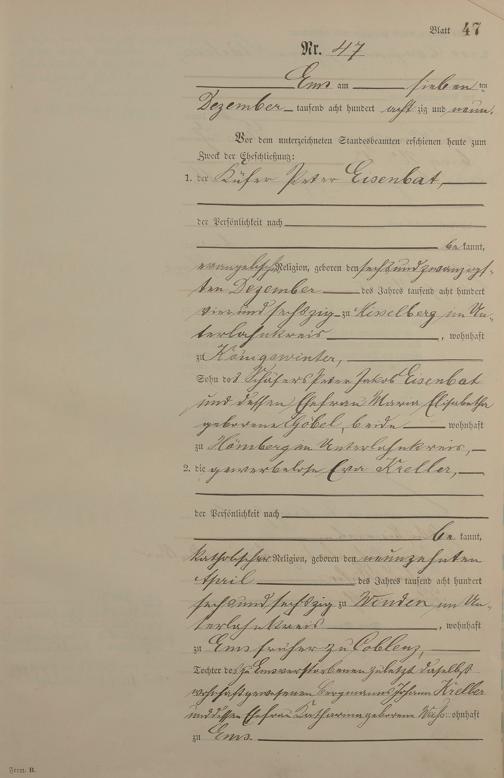 Blatt 47
Nr. 47
Ems am sieben ten
Dezember tausend acht hundert acht zig und neun.
Vor dem unterzeichneten Standesbeamten erschienen heute zum
Zweck der Eheschließung:
1. der Küfer Peter Eisenbat,
der Persönlichkeit nach
be kannt,
evangelischer Religion, geboren den sechsundzwanzigs-
ten Dezember des Jahres tausend acht hundert
vierundsechszig zu im Un-
terlahnkreis, wohnhaft
zu Königswinter,
Sohn des Schäfers Peter Jakob Eisenbat
und dessen Ehefrau Maria Elisabetha
geborene Göbel, beide wohnhaft
zu Hömberg im Unterlahnkreis,
2. die gewerbelose Eva Kreller,
der Persönlichkeit nach
be kannt,
katholischer Religion, geboren den neunzehnten
April des Jahres tausend acht hundert
sechsundsechszig zu Winden im Un-
terlahnkreis, wohnhaft
zu Ems früher zu Coblenz,
Tochter des zu Ems verstorbenen zuletzt daselbst
wohnhaft gewesenen Bergmanns Johann Kreller
und dessen Ehefrau Katharina geborene wohnhaft
zu Ems.
Form. B.